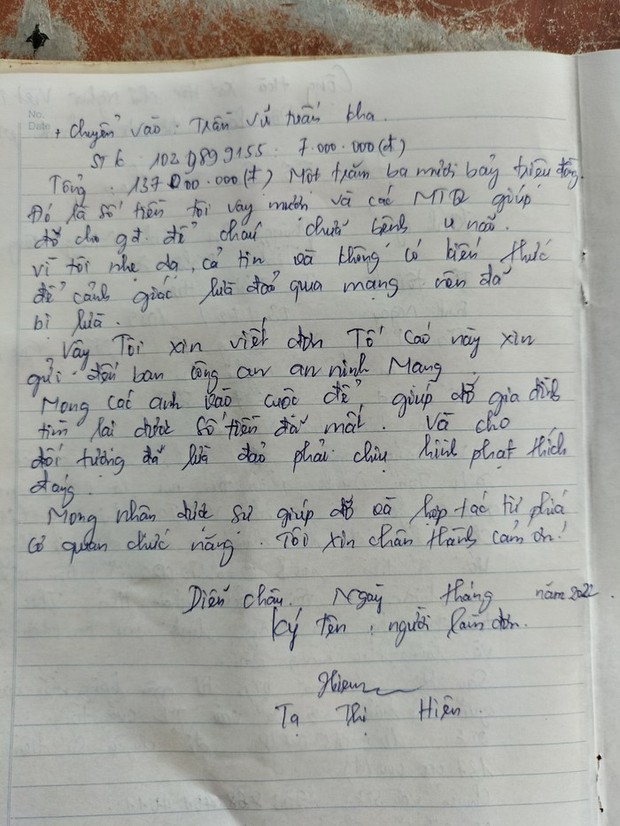 No:
Date
+ chuyển vào: Trần vũ tuấn kha.
STK: 102 9899155: 7.000.000 (đ)
Tổng: 137.000.000 (đ) Một trăm ba mươi bảy triệu đồng.
Đó là số tiền tôi vay mượn và các MTQ giúp
đỡ cho gđ. để cháu chữa bệnh u não.
vì tôi nhẹ dạ, cả tin và không có kiến thức
để cảnh giác lừa đảo qua mạng nên đã
bị lừa.
Vậy Tôi xin viết đơn Tố Cáo này xin
gửi đến ban công an an ninh Mạng
Mong các anh vào cuộc để giúp đỡ gia đình
tìm lại được số tiền đã mất. Và cho
đối tượng đã lừa đảo phải chịu hình phạt thích
đáng.
Mong nhận được sự giúp đỡ và hợp tác từ phía
cơ quan chức năng. Tôi xin chân thành cảm ơn!
Diễn châu. Ngày tháng năm 2022.
Ký tên, người làm đơn.
Hiên
Tạ Thị Hiên.